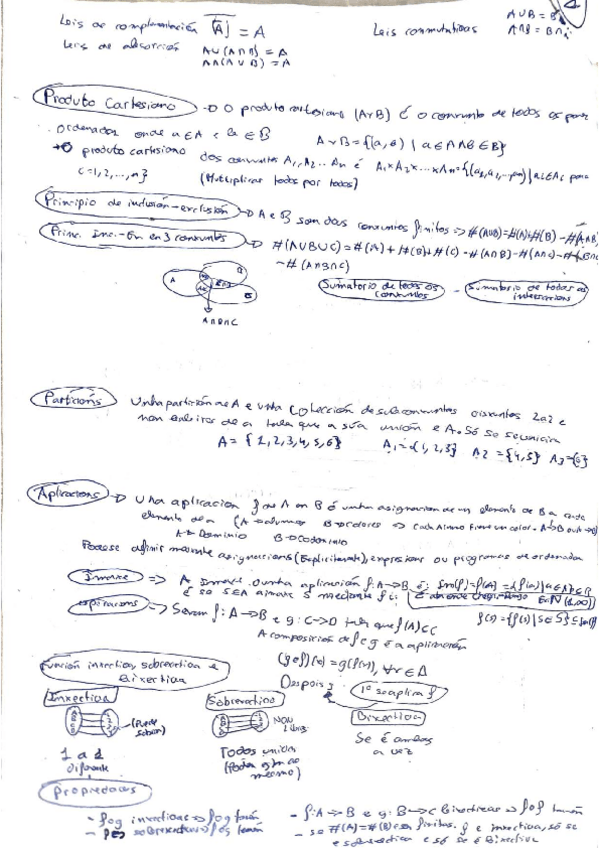 Leis de complementación A = A
Leis conmutativas A∪B = B
Leis de absorción A∪(A∩B) = A
A∩(A∪B) = A
Produto Cartesiano → O produto cartesiano (AxB) é o conxunto de todos os pares
ordenados onde a∈A e b∈B A×B={(a,b) | a∈A∧b∈B}
→ O produto cartesiano dos conxuntos A₁, A₂... An é A₁×A₂×...×An={(a₁,a₂,...,an) | ai∈Ai para
i=1,2,...,n} (Multiplicar todos por todos)
Principio de inclusión-exclusión → A e B son dous conxuntos finitos => #(A∪B)=#(A)+#(B)-#(A∩B)
Princ. Inc.-Ex en 3 conxuntos → #(A∪B∪C)=#(A)+#(B)+#(C)-#(A∩B)-#(A∩C)-#(B∩C)
#(A∩B∩C)
Sumatorio de todos os conxuntos - Sumatorio de todas as interseccions
A B
A∩B∩C
Particións Unha partición de A é unha colección de subconxuntos disxuntos 2a2 e
non baleiros de a tal que a súa unión é A. Só se
A = {1,2,3,4,5,6} A₁={1,2,3} A₂={4,5} A₃={6}
Aplicacions → Unha aplicación f de A en B é unha asignación de un elemento de B a cada
elemento de A (A→alumnos B→colores => Cada alumno ten un color. A→B
A→Dominio B→Codominio
Podese definir mediante asignacions (Explicitamente), expresions ou programas de ordenador
Imaxe => A imaxe dunha aplicación f:A→B é: Im(f)=f(A)={f(a) | a∈A}⊆B
é se S⊆A a imaxe S mediante f é:
f(S)={f(s) | s∈S}⊆Im(f)
operacions => Sexan f:A→B e g:C→D tal que f(A)⊆C
A composición de f e g é a aplicación
(g∘f)(x)=g(f(x)), ∀x∈A
Despois g 1º se aplica f
Función inxectiva, sobrexectiva e
bixectiva
Inxectiva Sobrexectiva Bixectiva
(Puede sobrar) NON
1 a 1 Todos unidos Se é ambas
diferente a vez
mesmo)
Propiedades
- f e g inxectivas => f∘g tamén
- f e g sobrexectivas => f∘g tamén
- f:A→B e g:B→C bixectivas => g∘f tamén
- se #(A)=#(B) e son finitos. f é inxectiva, só se
é sobrexectiva e só se é bixectiva